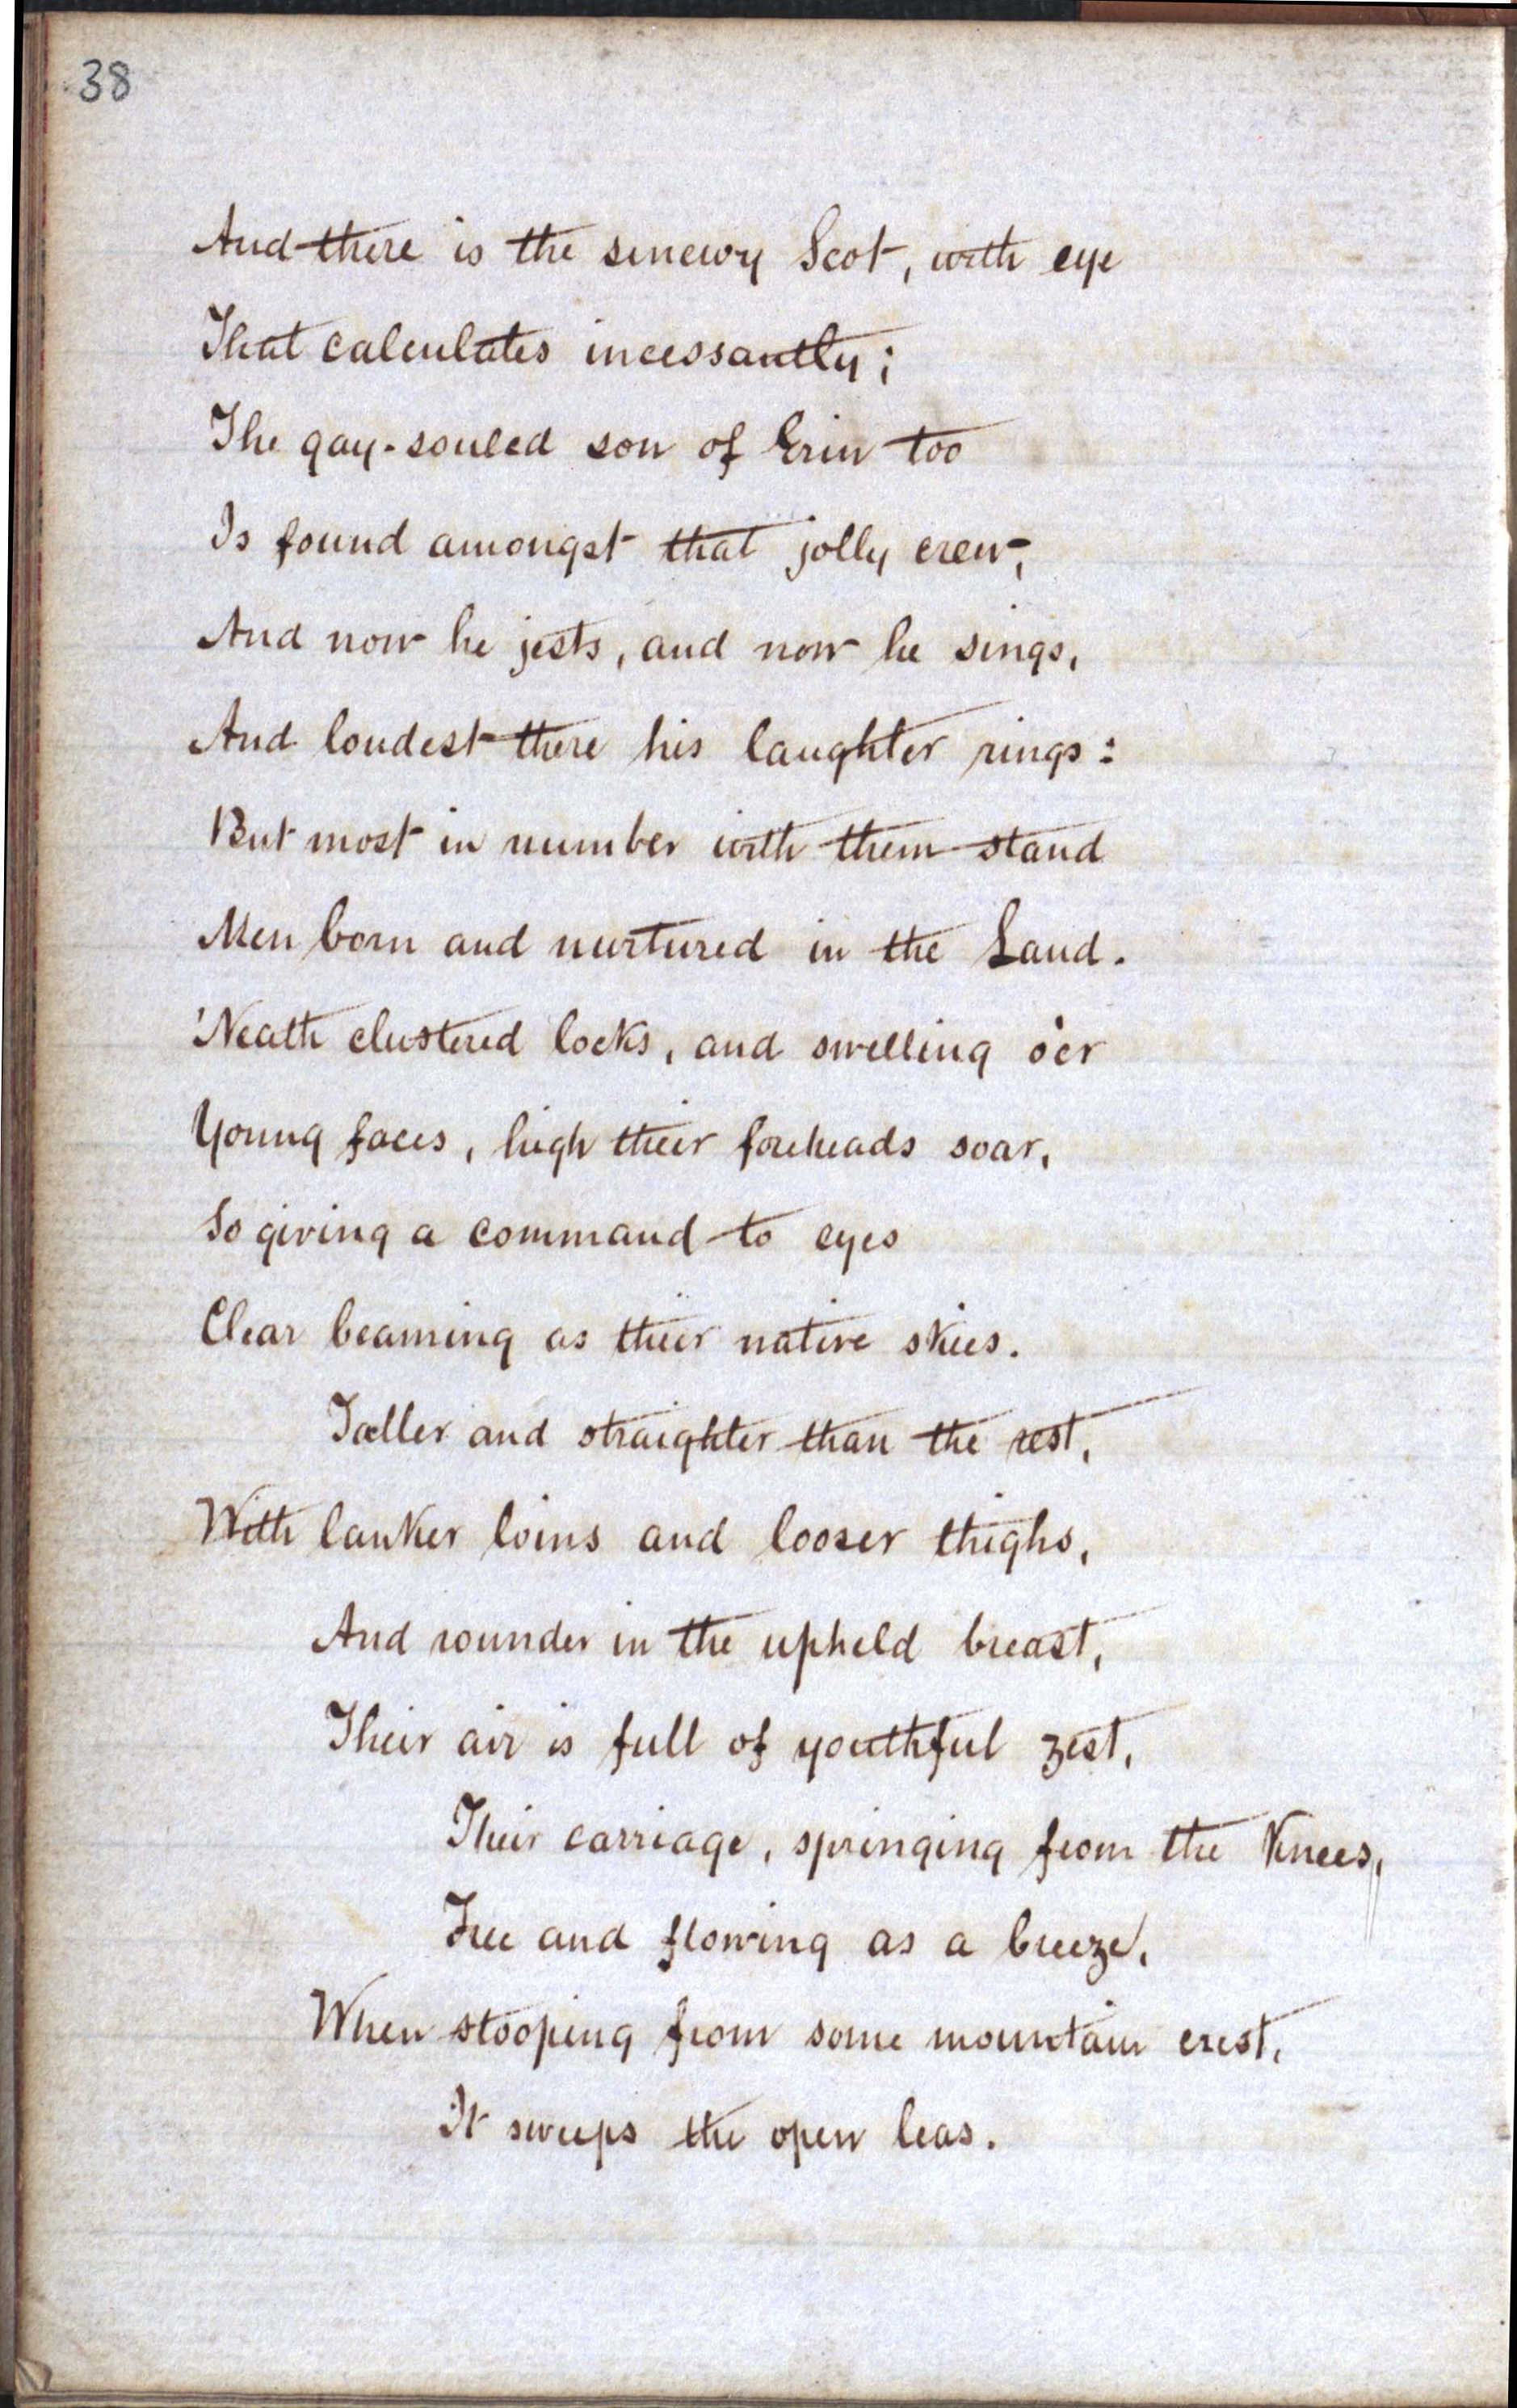 38
And there is the sinewy Scot, with eye
That calculates incessantly;
The gay-souled son of Erin too
Is found amongst that jolly crew,
And now he jests, and now he sings,
And loudest there his laughter rings:
But most in number with them stand
Men born and nurtured in the Land.
'Neath clustered locks, and swelling o'er
Young faces, high their foreheads soar,
So giving a command to eyes
Clear beaming as their native skies.
Taller and straighter than the rest,
With lanker loins and looser thighs,
And rounder in the upheld breast,
Their air is full of youthful zest,
Their carriage, springing from the knees,
Free and flowing as a breeze,
When stooping from some mountain crest,
It sweeps the open leas.